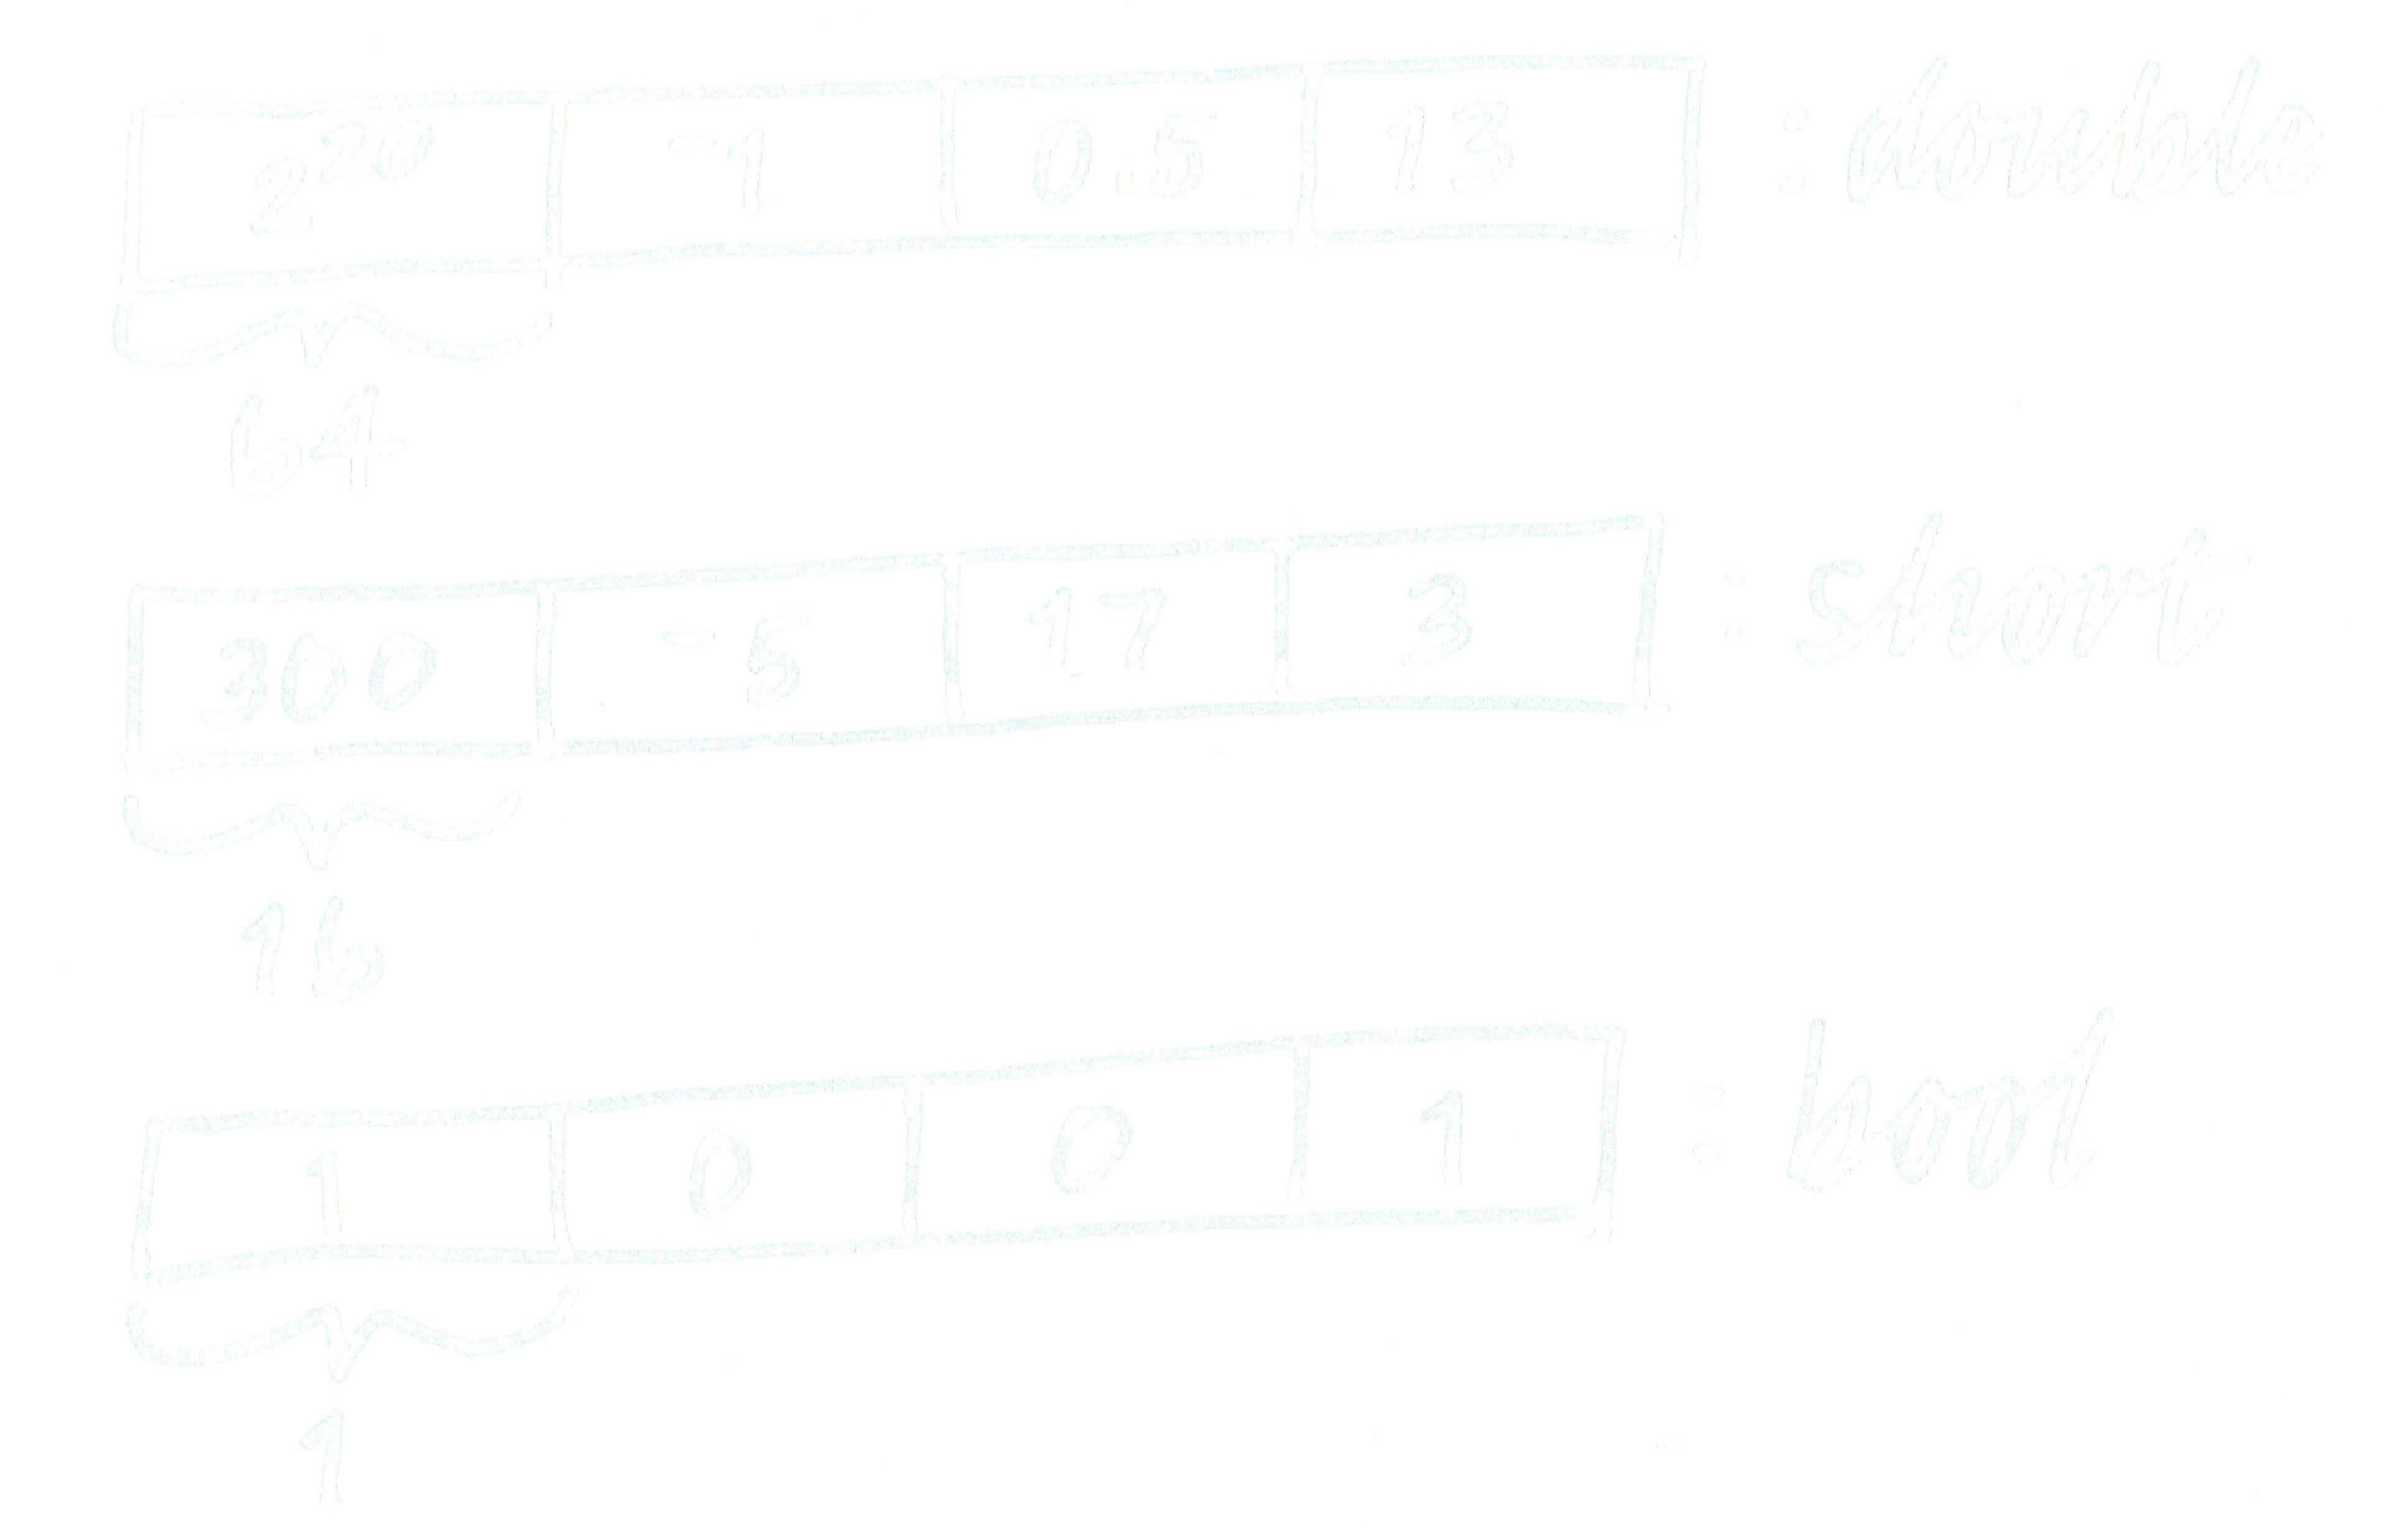 2²⁰ ⁻1 0.5 13 : double
64
300 ⁻5 17 3 : short
16
1 0 0 1 : bool
1